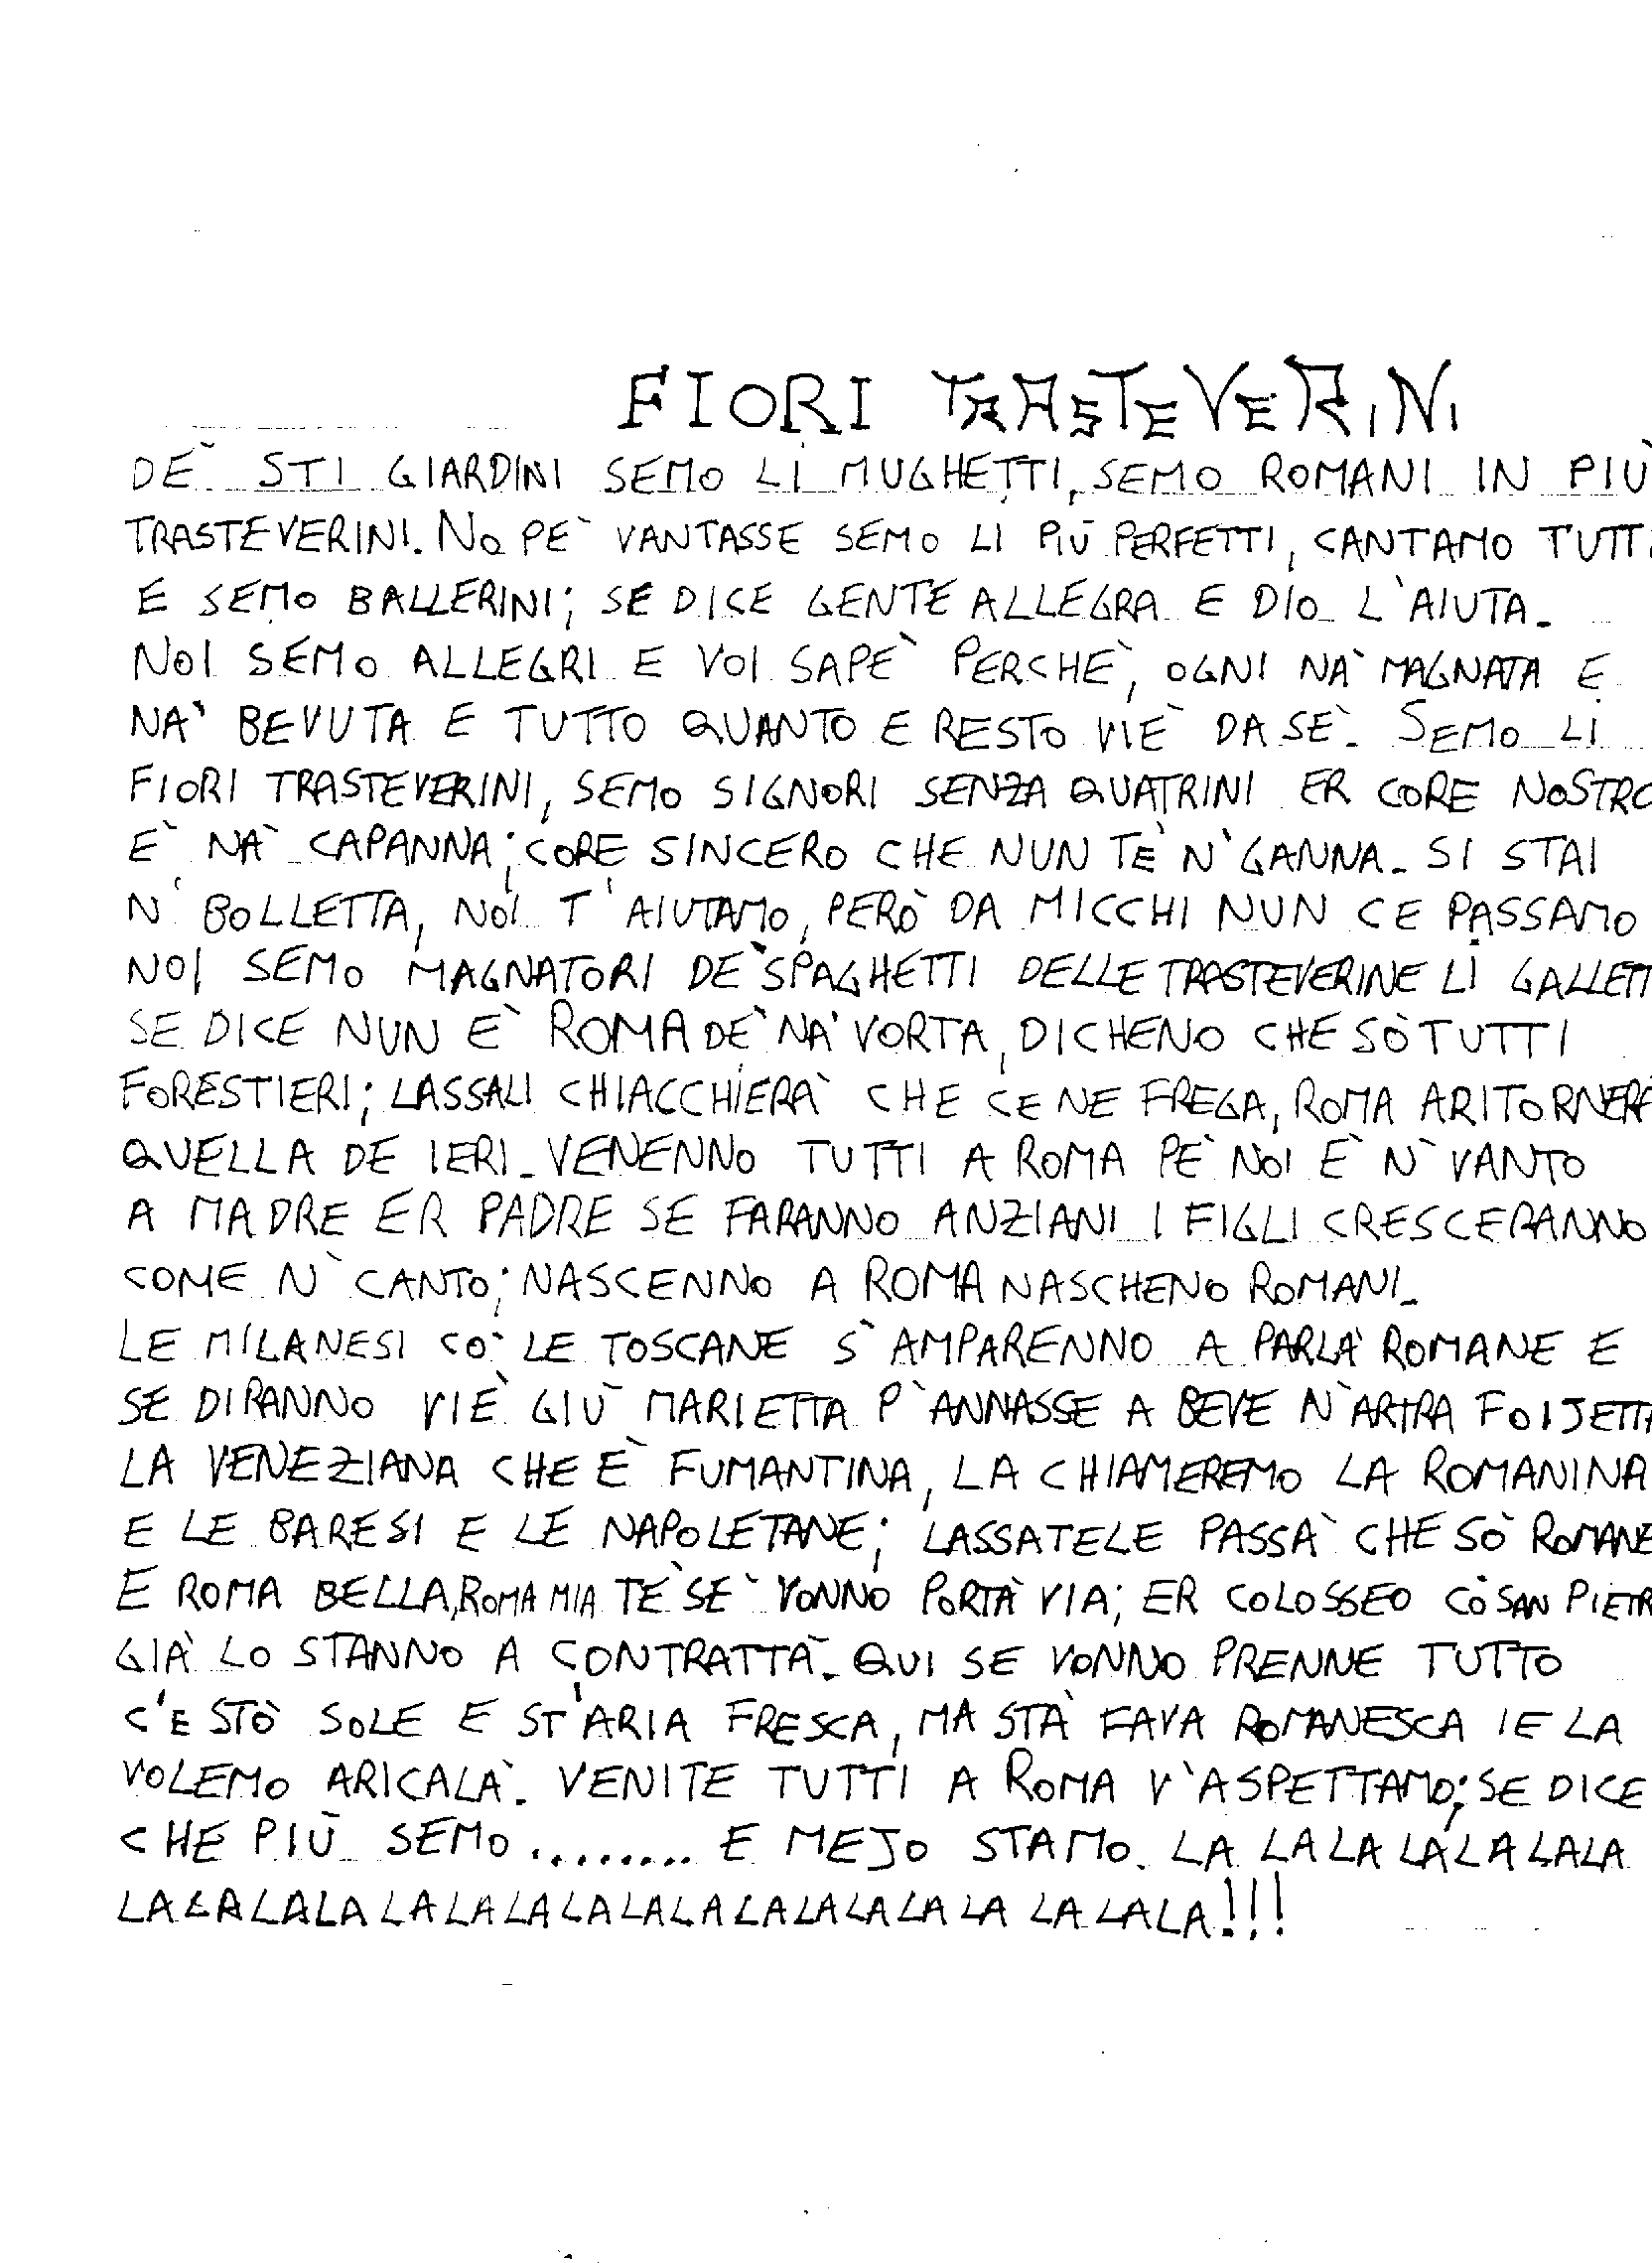 FIORI TRASTEVERINI
DE` STI GIARDINI SEMO LI MUGHETTI, SEMO ROMANI IN PIÙ
TRASTEVERINI. NO PE` VANTASSE SEMO LI PIÙ PERFETTI, CANTAMO TUTTI
E SEMO BALLERINI; SE DICE GENTE ALLEGRA E DIO L'AIUTA.
NOI SEMO ALLEGRI E VOI SAPE` PERCHE`, OGNI NA` MAGNATA E
NA` BEVUTA E TUTTO QUANTO E RESTO VIE` DA SE`. SEMO LI
FIORI TRASTEVERINI, SEMO SIGNORI SENZA QUATRINI ER CORE NOSTRO
E` NA` CAPANNA; CORE SINCERO CHE NUN TE` N`GANNA. SI STAI
N` BOLLETTA, NOI T'AIUTAMO, PERÒ DA MICCHI NUN CE PASSAMO
NOI SEMO MAGNATORI DE` SPAGHETTI DELLE TRASTEVERINE LI GALLETT
SE DICE NUN E` ROMA DE` NA` VORTA, DICHENO CHE SÒ TUTTI
FORESTIERI; LASSALI CHIACCHIERÀ CHE CE NE FREGA, ROMA ARITORNERÀ
QUELLA DE IERI. VENENNO TUTTI A ROMA PE` NOI E` N` VANTO
A MADRE ER PADRE SE FARANNO ANZIANI I FIGLI CRESCERANNO
COME N` CANTO; NASCENNO A ROMA NASCHENO ROMANI.
LE MILANESI CO` LE TOSCANE S`AMPARENNO A PARLÀ ROMANE E
SE DIRANNO VIE` GIÙ MARIETTA P`ANNASSE A BEVE N`ARTRA FOIJETTA
LA VENEZIANA CHE E` FUMANTINA, LA CHIAMEREMO LA ROMANINA
E LE BARESI E LE NAPOLETANE; LASSATELE PASSÀ CHE SÒ ROMANE
E ROMA BELLA, ROMA MIA TE` SE` VONNO PORTÀ VIA; ER COLOSSEO CÒ SAN PIETR
GIÀ LO STANNO A CONTRATTÀ. QUI SE VONNO PRENNE TUTTO
C'E STÒ SOLE E ST'ARIA FRESCA, MA STÀ FAVA ROMANESCA IE LA
VOLEMO ARICALÀ. VENITE TUTTI A ROMA V`ASPETTAMO; SE DICE
CHE PIÙ SEMO ........ E MEJO STAMO. LA LA LA LA LA LALA
LALALALA LALALALALALALALALALA LA LALALA!!!